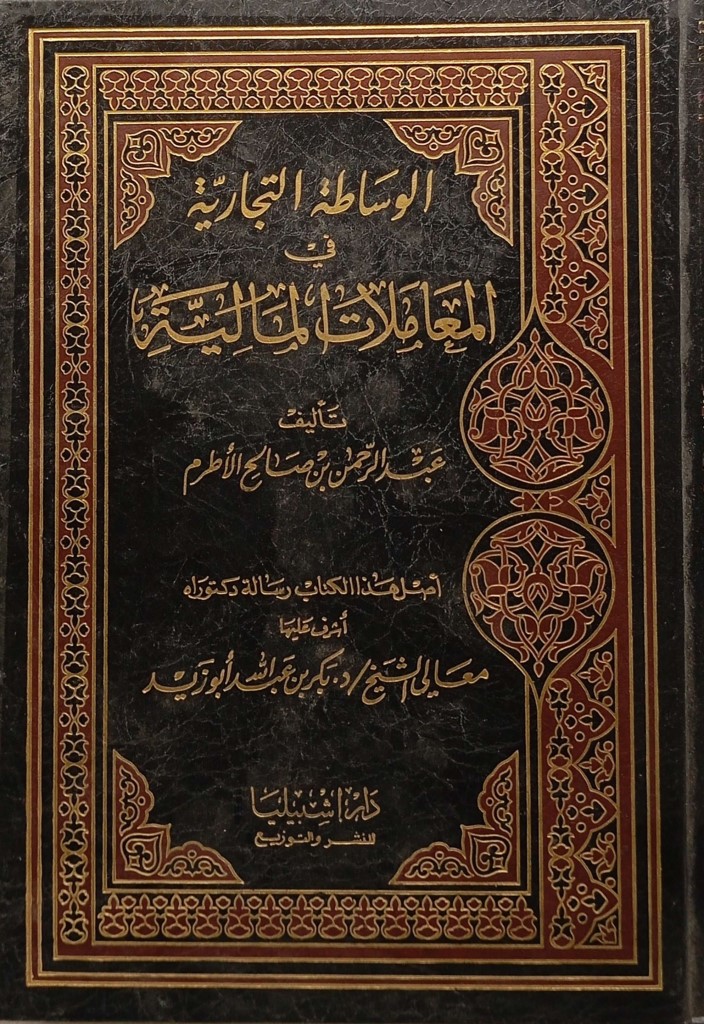 الوساطة التجارية
في
المعاملات المالية
تأليف
عبد الرحمن بن صالح الأطرم
أصل هذا الكتاب رسالة دكتوراه
أشرف عليها
معالي الشيخ / د. بكر بن عبد الله أبو زيد
دار إشبيليا
للنشر والتوزيع